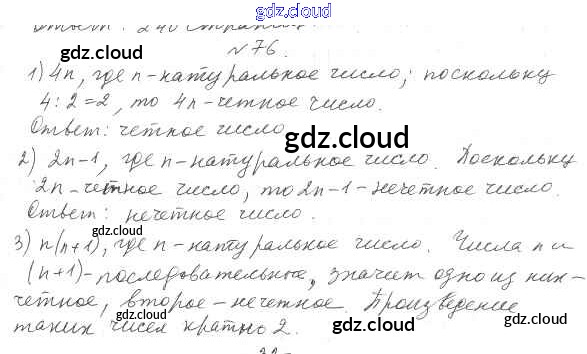 gdz.cloud
Ответ: 240 страниц
№76.
1) 4n, где n - натуральное число; поскольку
4:2=2, то 4n - четное число.
Ответ: четное число.
2) 2n-1, где n - натуральное число. Поскольку
2n - четное число, то 2n-1 - нечетное число.
Ответ: нечетное число.
3) n(n+1), где n - натуральное число. Числа n и
(n+1) - последовательные, значит одно из них -
четное, второе - нечетное. Произведение
таких чисел кратно 2.
gdz.cloud
gdz.cloud
gdz.cloud
gdz.cloud
gdz.cloud
gdz.cloud
gdz.cloud
gdz.cloud
gdz.cloud